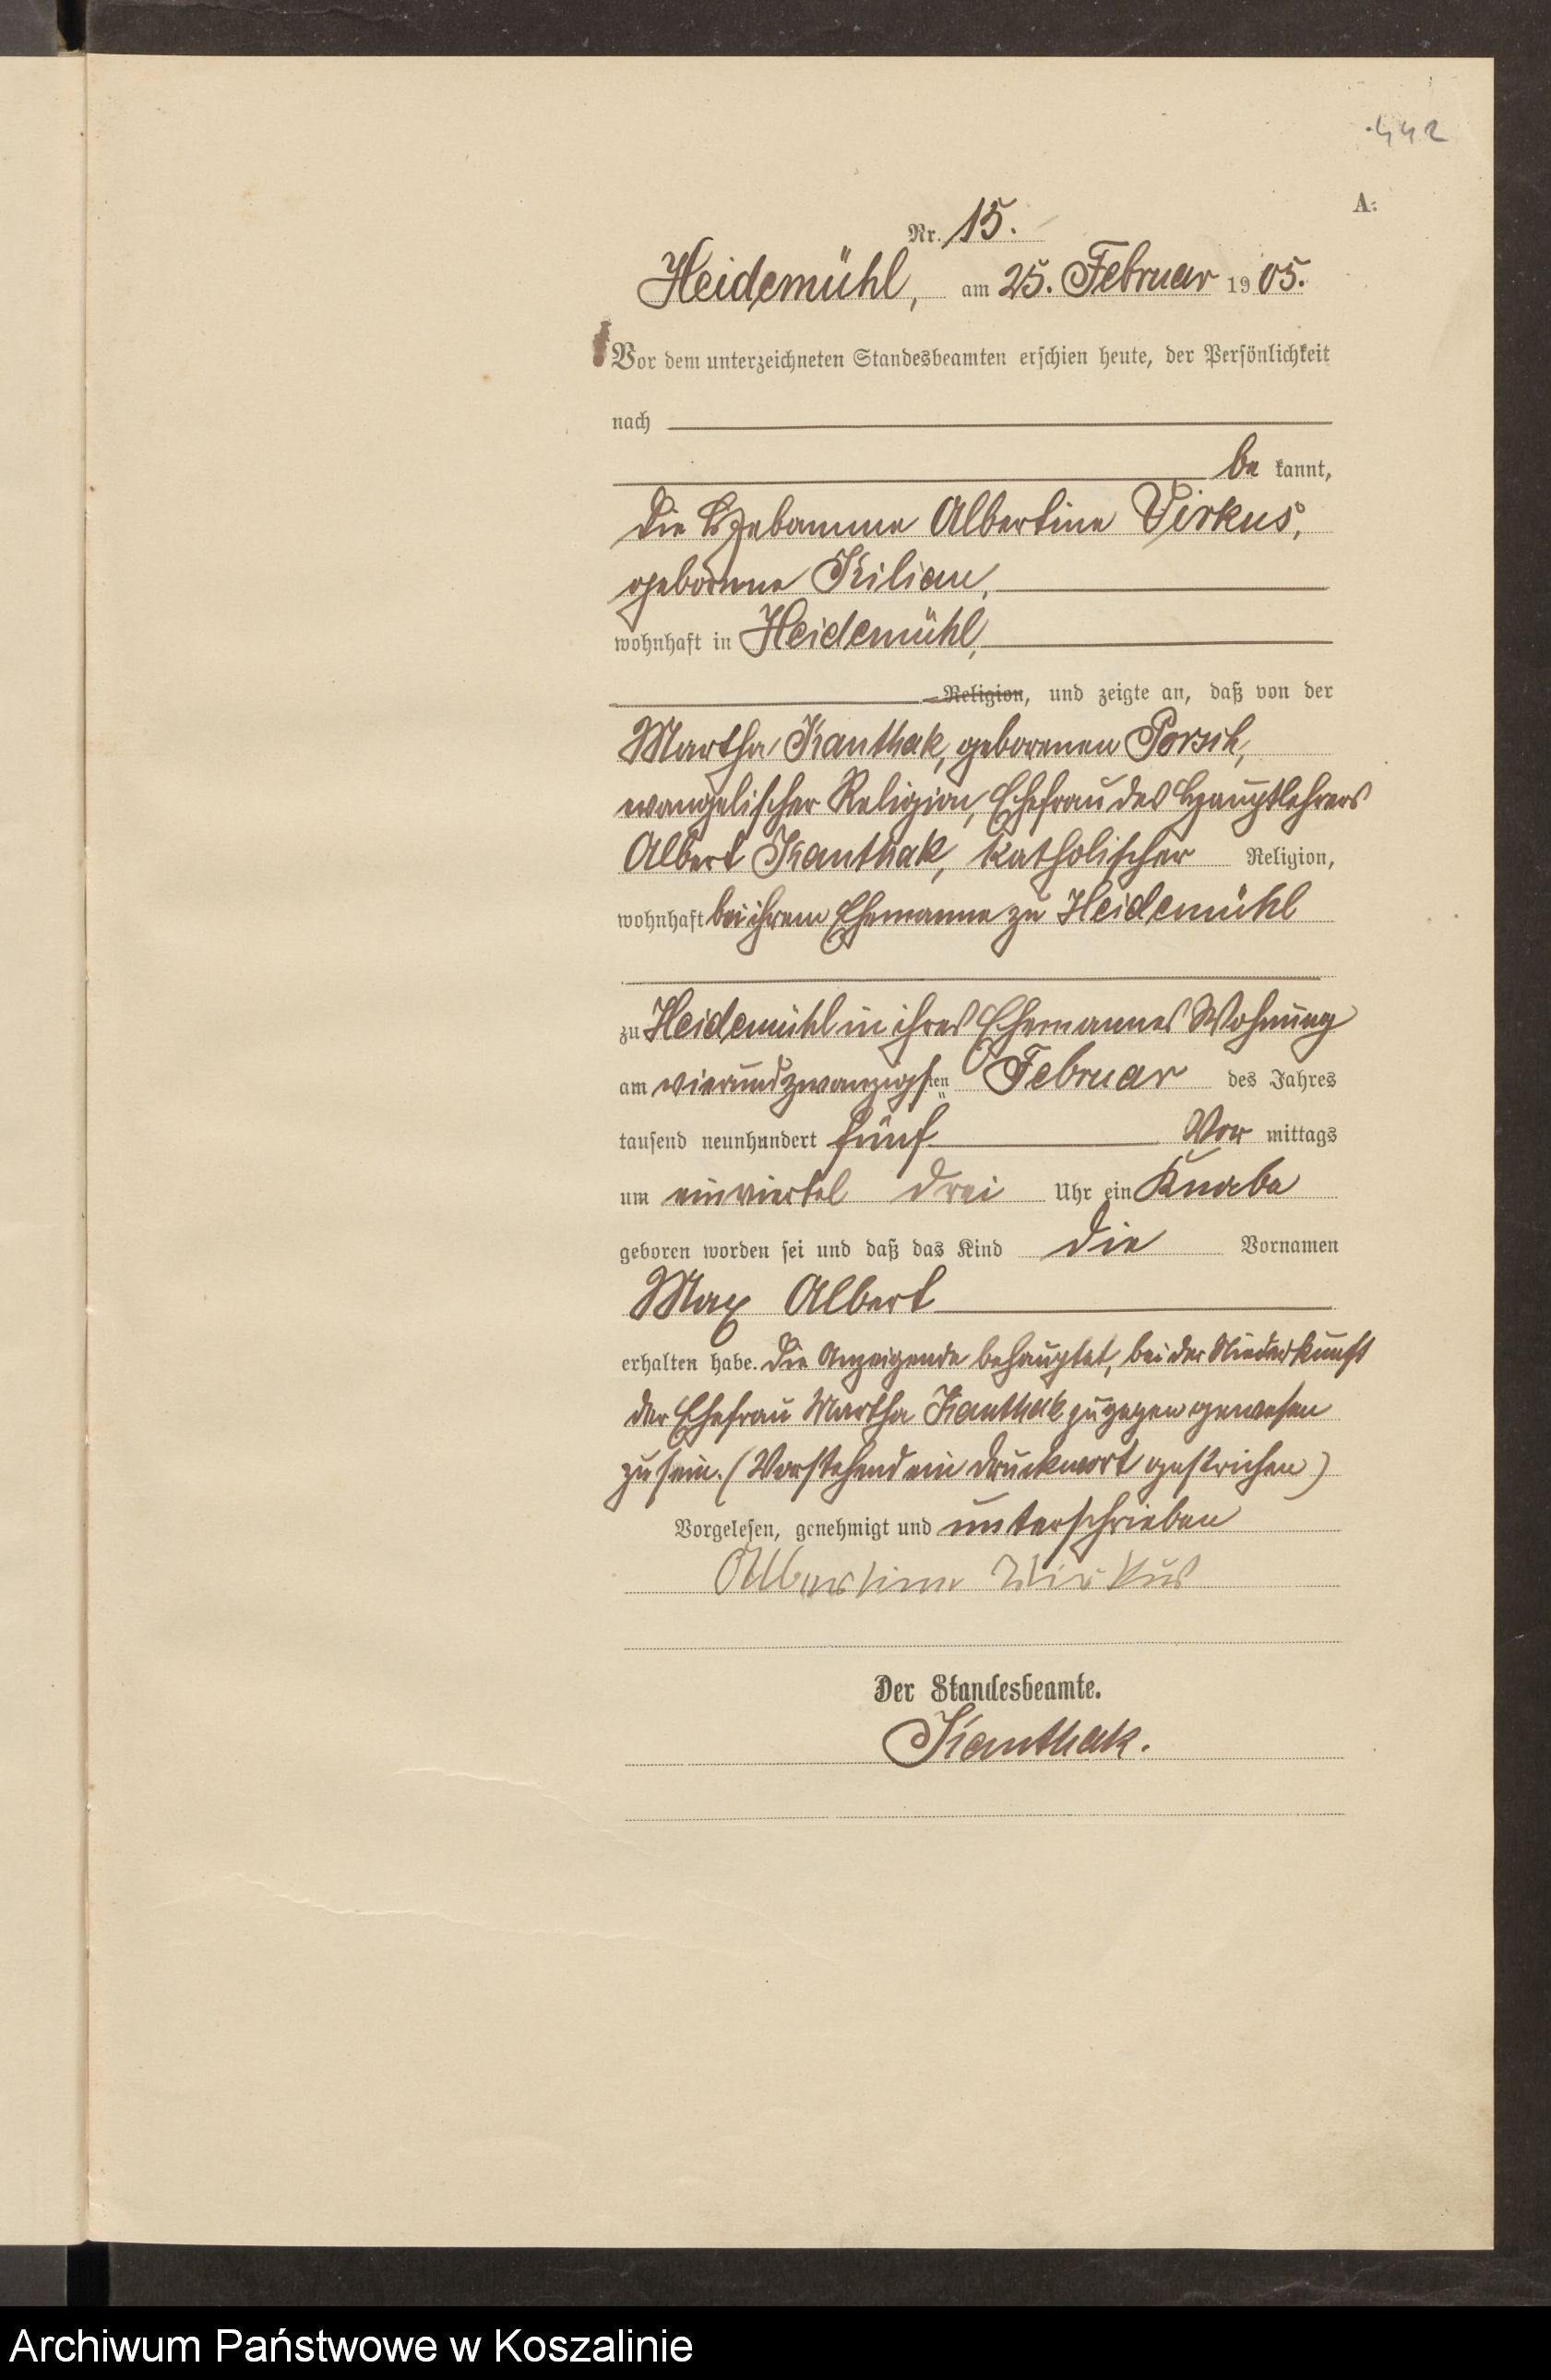 442
A:
Nr. 15.
Heidemühl, am 25. Februar 1905.
Vor dem unterzeichneten Standesbeamten erschien heute, der Persönlichkeit
nach
be kannt,
die Hebamme Albertine Virkus,
geborene Kilian,
wohnhaft in Heidemühl,
Religion, und zeigte an, daß von der
Martha Kanthak, geborenen Porsch,
evangelischer Religion, Ehefrau des Hauptlehrers
Albert Kanthak, katholischer Religion,
wohnhaft bei ihrem Ehemanne zu Heidemühl
zu Heidemühl in ihres Ehemannes Wohnung
am vierundzwanzigsten Februar des Jahres
tausend neunhundert fünf Vor mittags
um einviertel drei Uhr ein Knabe
geboren worden sei und daß das Kind die Vornamen
Max Albert
erhalten habe. Die Anzeigende behauptet, bei der Niederkunft
der Ehefrau Martha Kanthak zugegen gewesen
zu sein. (Vorstehend ein Druckwort gestrichen)
Vorgelesen, genehmigt und unterschrieben
Albertine Wirkus
Der Standesbeamte.
Kanthak.
Archiwum Państwowe w Koszalinie